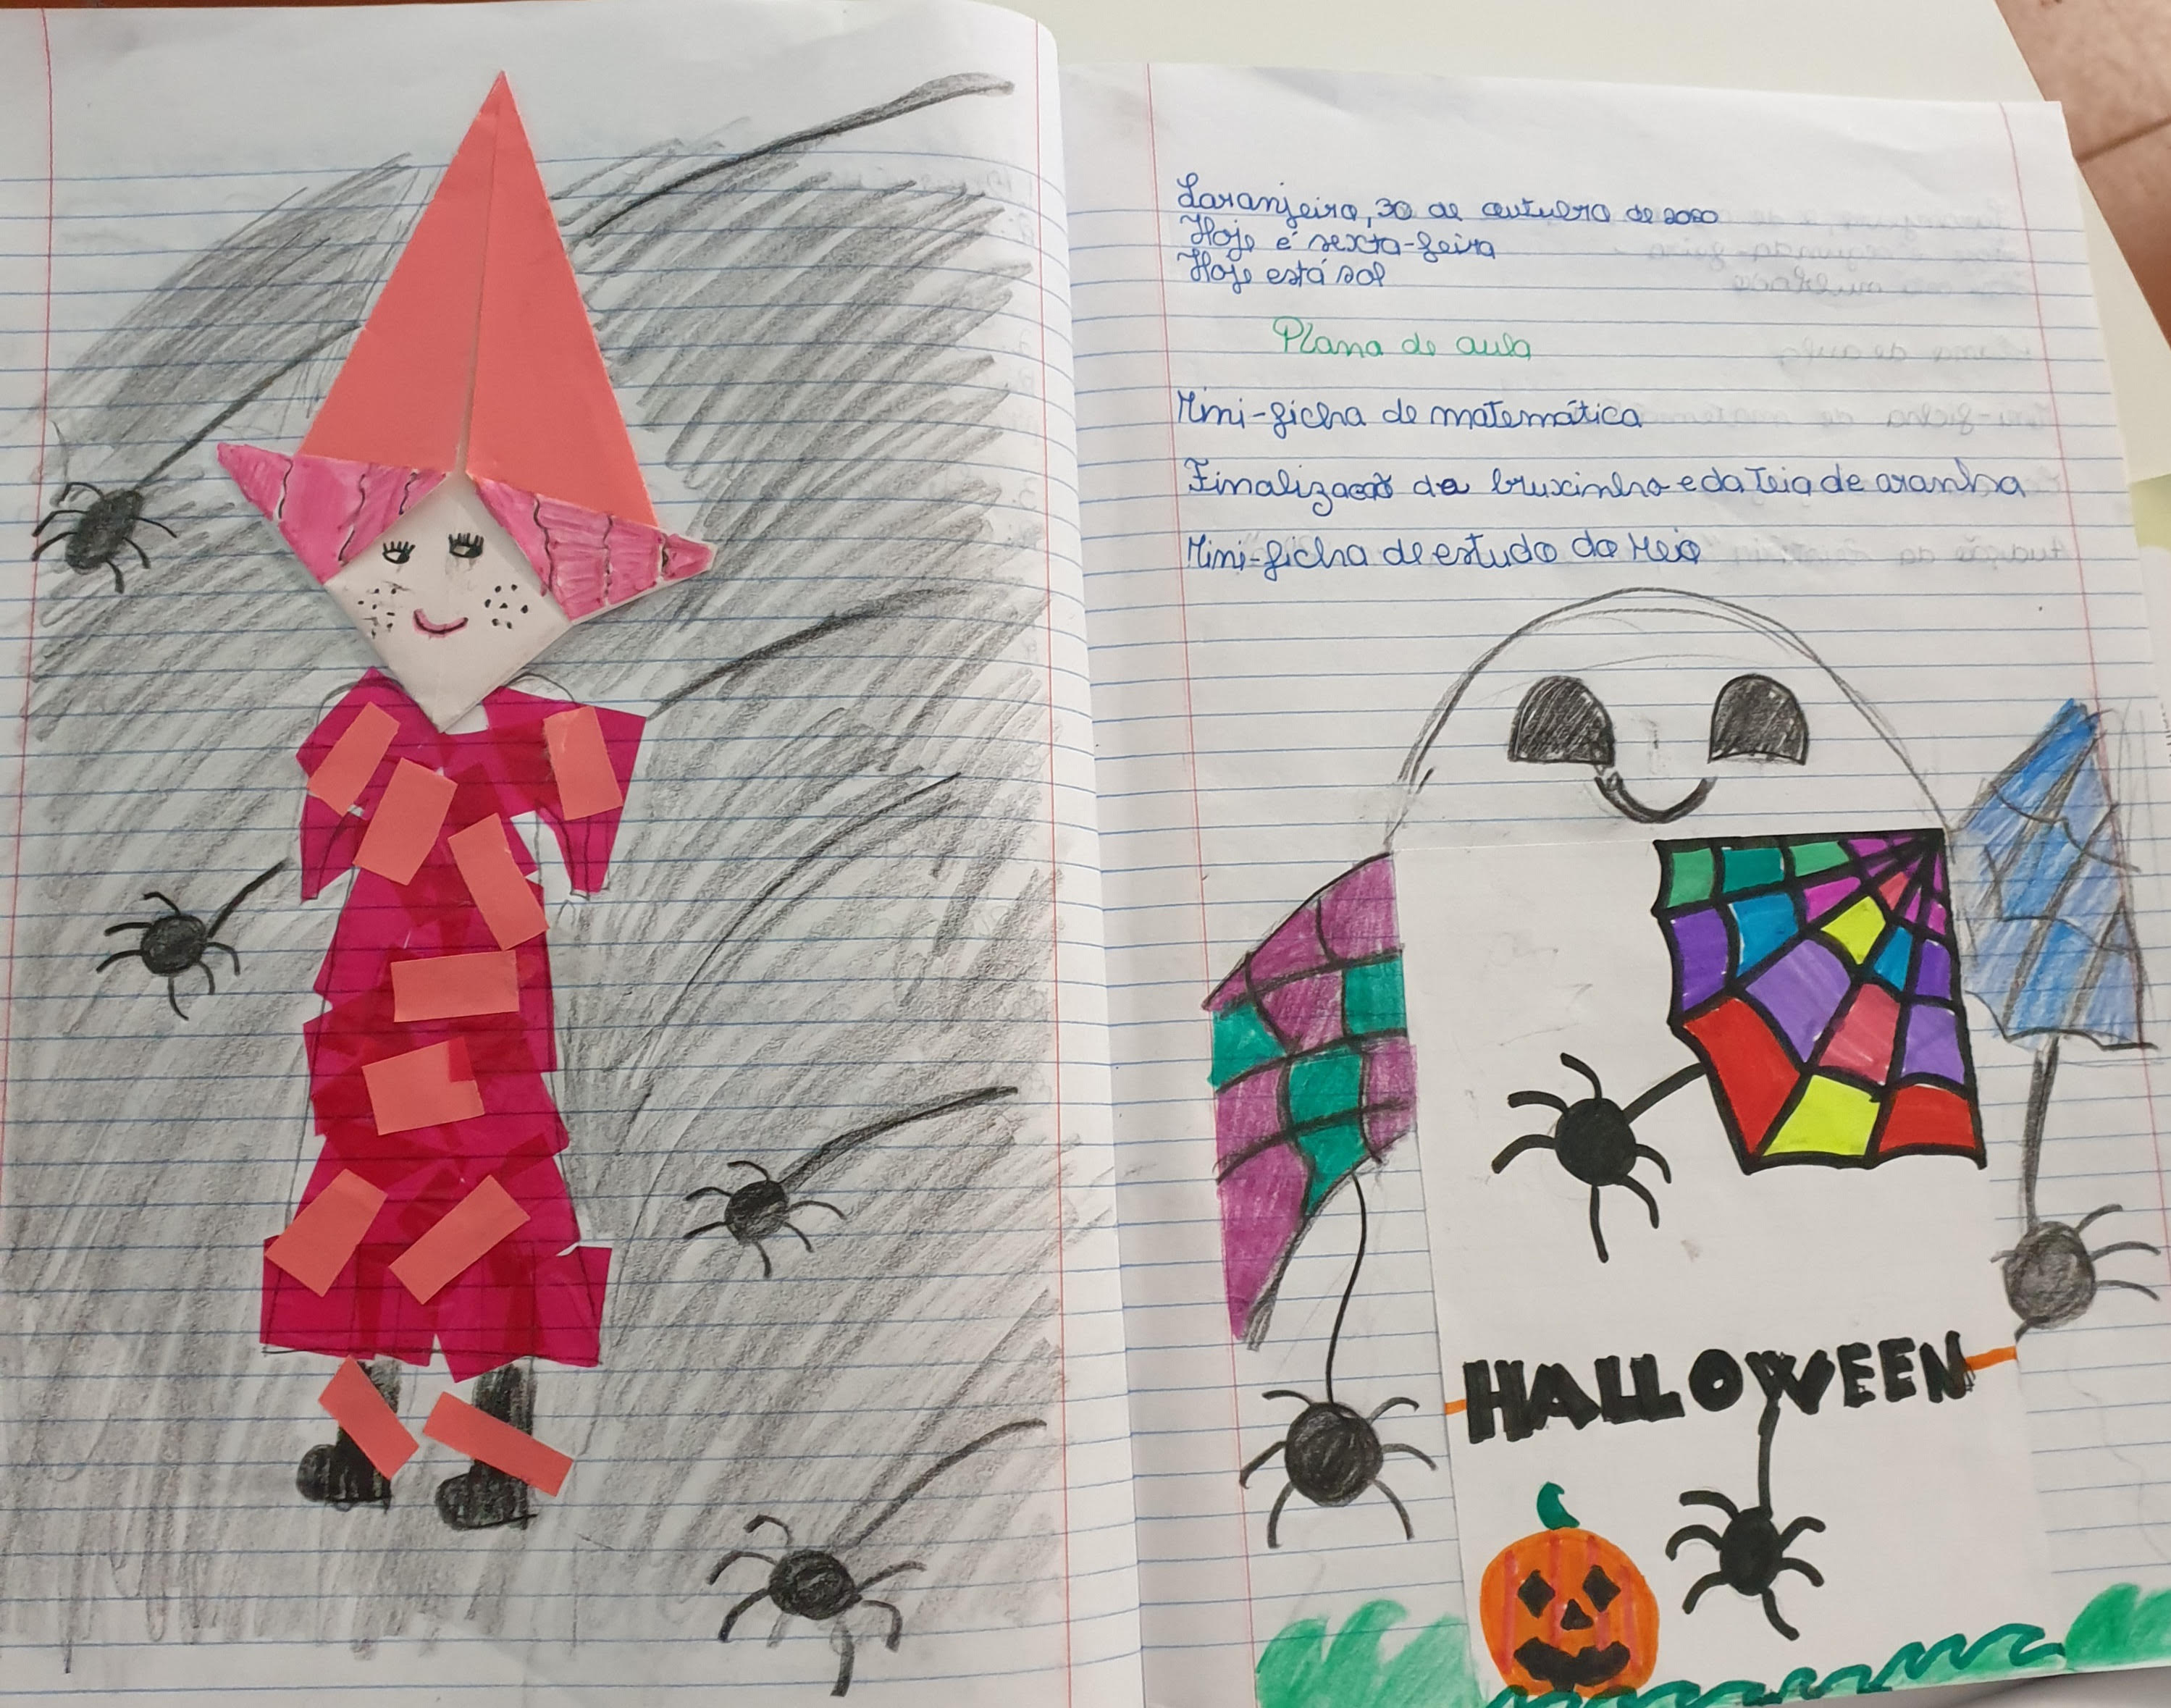 Laranjeiro, 30 de outubro de 2020
Hoje é sexta-feira
Hoje está sol
Plano de aula
Mini-ficha de matemática
Finalização da bruxinha e da teia de aranha
Mini-ficha de estudo do Meio
HALLOWEEN